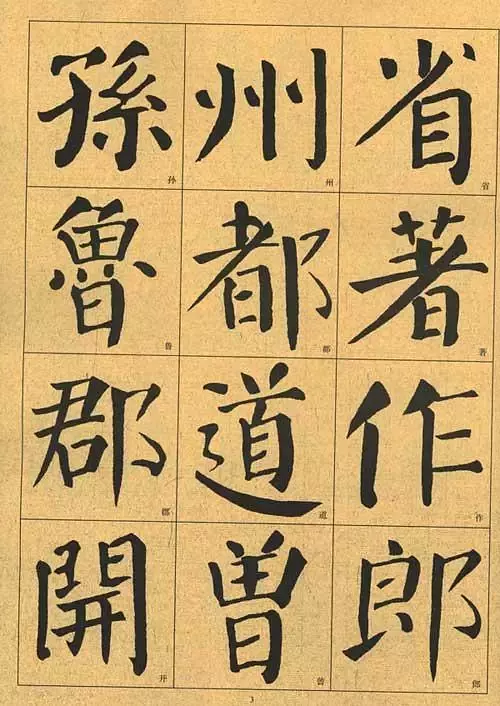 省著作郎
州都道曾
孫魯郡開
省
著
作
郎
州
都
道
曾
孙
鲁
郡
开
3